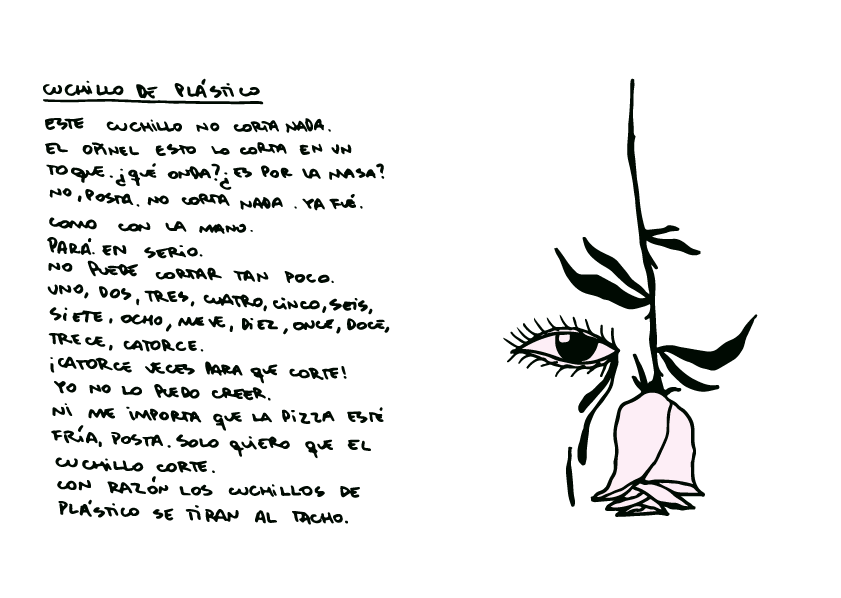 CUCHILLO DE PLÁSTICO
ESTE CUCHILLO NO CORTA NADA.
EL OPINEL ESTO LO CORTA EN UN
TOQUE. ¿QUÉ ONDA? ¿ES POR LA MASA?
NO, POSTA. NO CORTA NADA. YA FUÉ.
COMO CON LA MANO.
PARÁ. EN SERIO.
NO PUEDE CORTAR TAN POCO.
UNO, DOS, TRES, CUATRO, CINCO, SEIS,
SIETE, OCHO, NUEVE, DIEZ, ONCE, DOCE,
TRECE, CATORCE.
¡CATORCE VECES PARA QUE CORTE!
YO NO LO PUEDO CREER.
NI ME IMPORTA QUE LA PIZZA ESTÉ
FRÍA, POSTA. SOLO QUIERO QUE EL
CUCHILLO CORTE.
CON RAZÓN LOS CUCHILLOS DE
PLÁSTICO SE TIRAN AL TACHO.